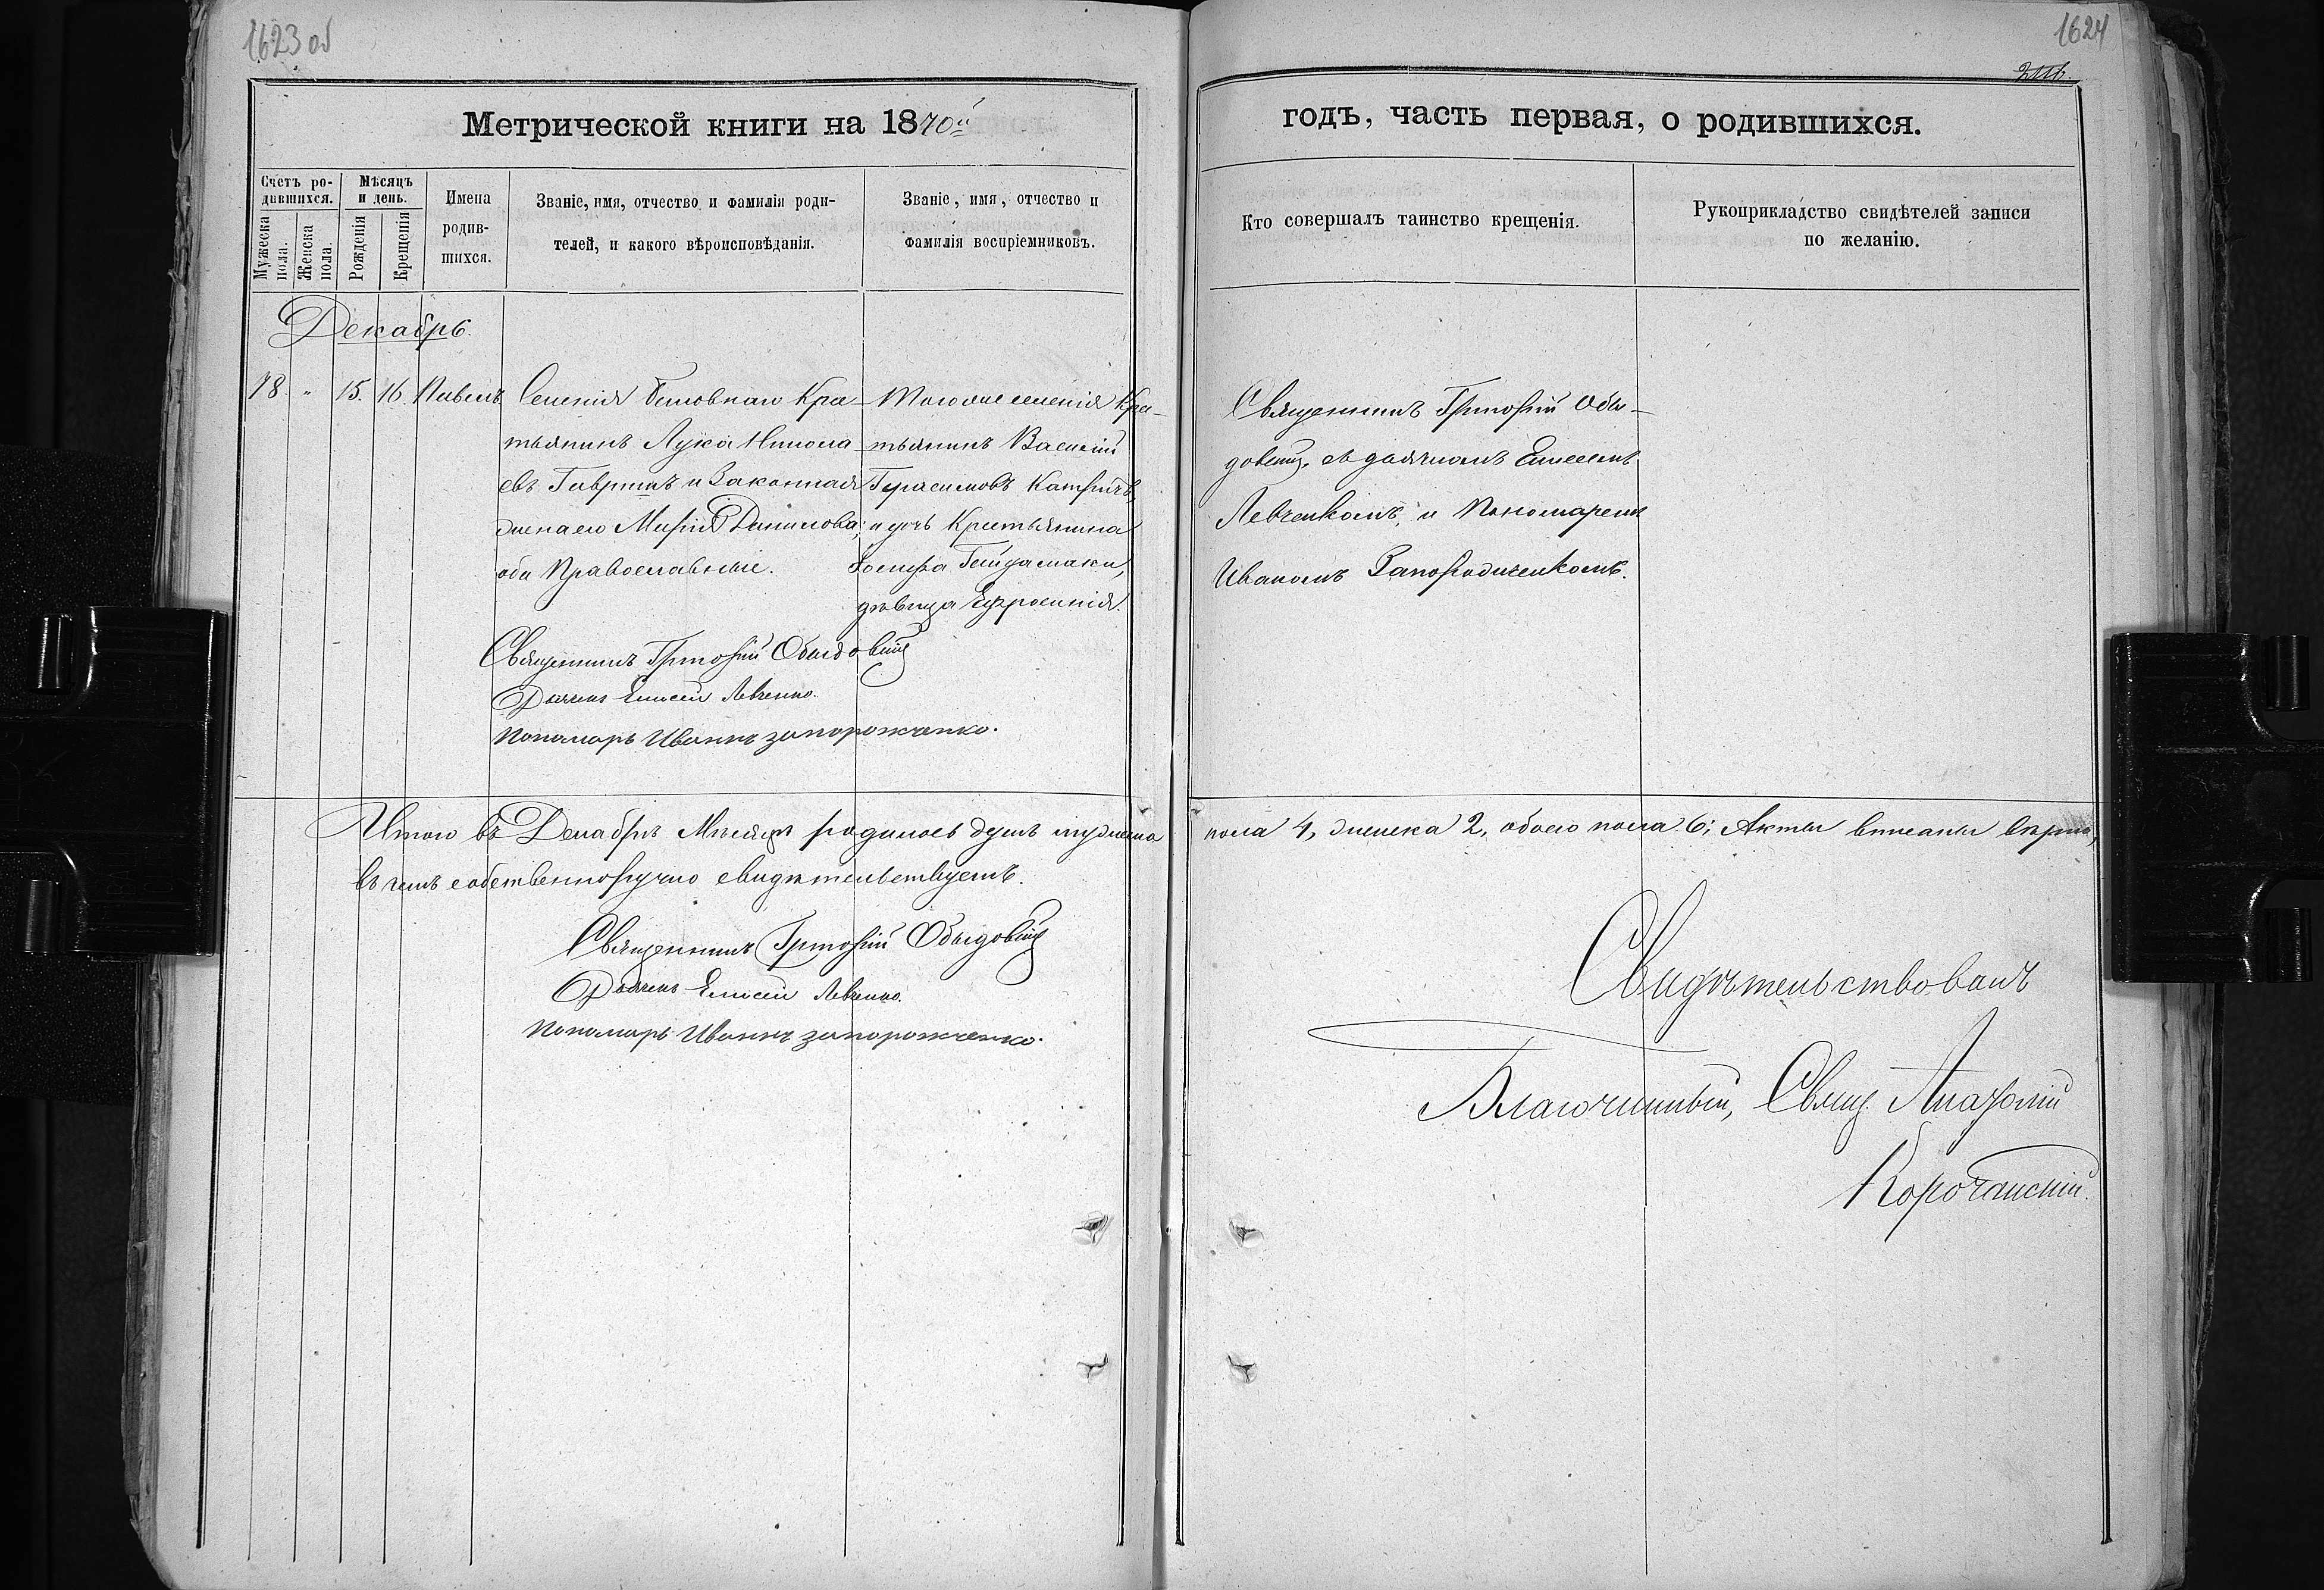 1623 об
1624
Метрической книги на 1870й
годъ, часть первая, о родившихся.
Счетъ ро-
дившихся.
Мужеска пола.
Женска пола.
Мѣсяцъ
и день.
Рожденія
Крещенія
Имена
родив-
шихся.
Званіе, имя, отчество и фамилія роди-
телей, и какого вѣроисповѣданія.
Званіе, имя, отчество и
фамилія воспріемниковъ.
Кто совершалъ таинство крещенія.
Рукоприкладство свидѣтелей записи
по желанію.
Декабрь.
78. " 15. 16. Павелъ.
Селенія Кре-
стьянинъ Лука Никола-
евъ и Законная
жена его Марія Данилова,
оба Православные.
Того же селенія Кре-
стьянинъ Василій
Герасимовъ
и дочь Крестьянина
Іосифа Гейдамаки,
дѣвица Ефросинія.
Священникъ Григорій Обы-
довскій, съ дьячкомъ Елисеемъ
Левченкомъ, и Пономаремъ
Иваномъ Запорожченкомъ.
Священникъ Григорій Обыдовскій
Дьячекъ Елисей Левченко.
Пономарь Иванъ запорожченко.
Итого въ Декабрѣ Мѣсяцѣ родилось душъ мужеска
пола 4, женска 2, обоего пола 6; Акты вписаны вѣрно,
въ чемъ собственноручно свидѣтельствуемъ.
Священникъ Григорій Обыдовскій
Дьячекъ Елисей Левченко.
Пономарь Иванъ запорожченко.
Свидѣтельствовалъ
Благочинный, Свящ.
Корочанскій.